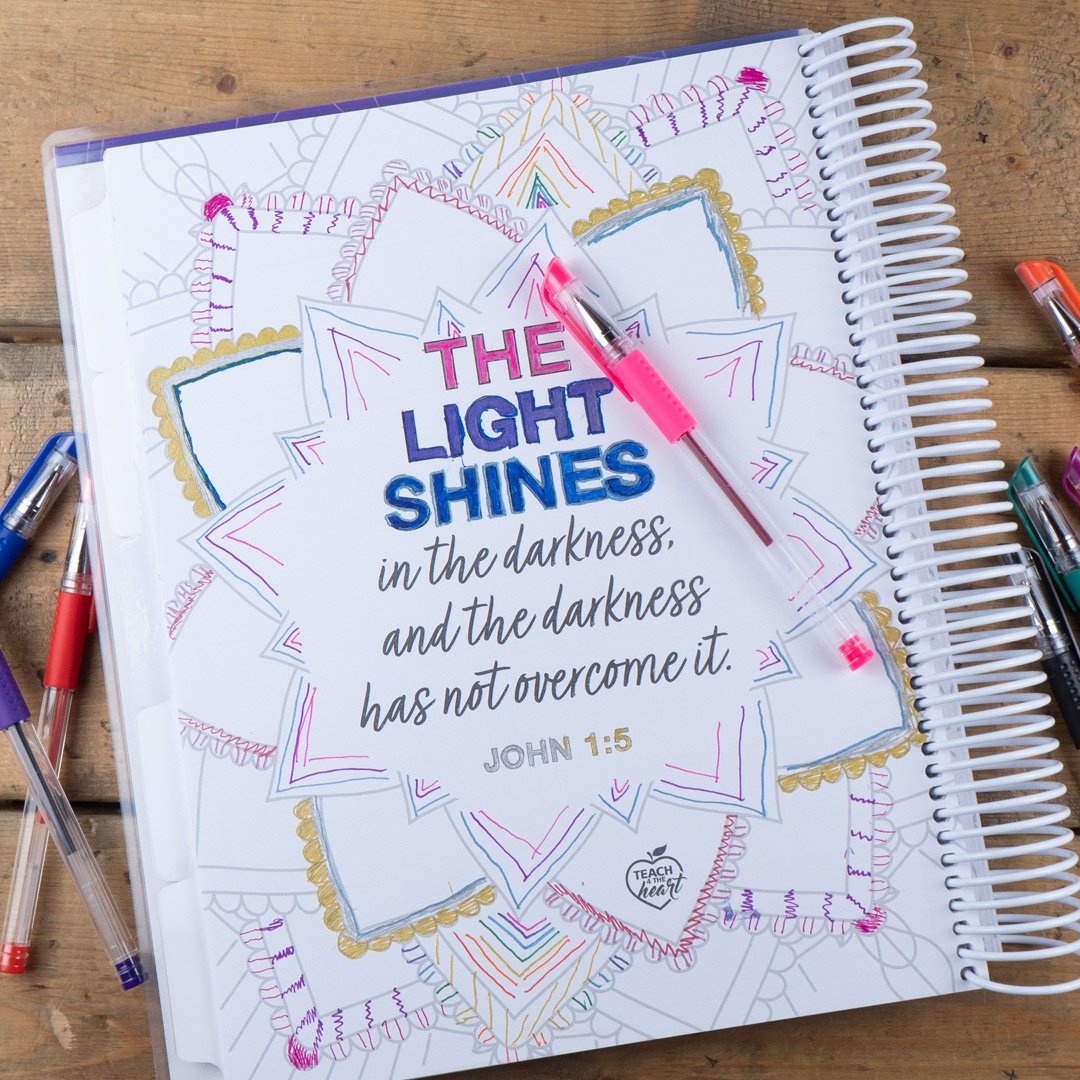 THE
LIGHT
SHINES
in the darkness,
and the darkness
has not overcome it.
JOHN 1:5
TEACH
4 THE
heart